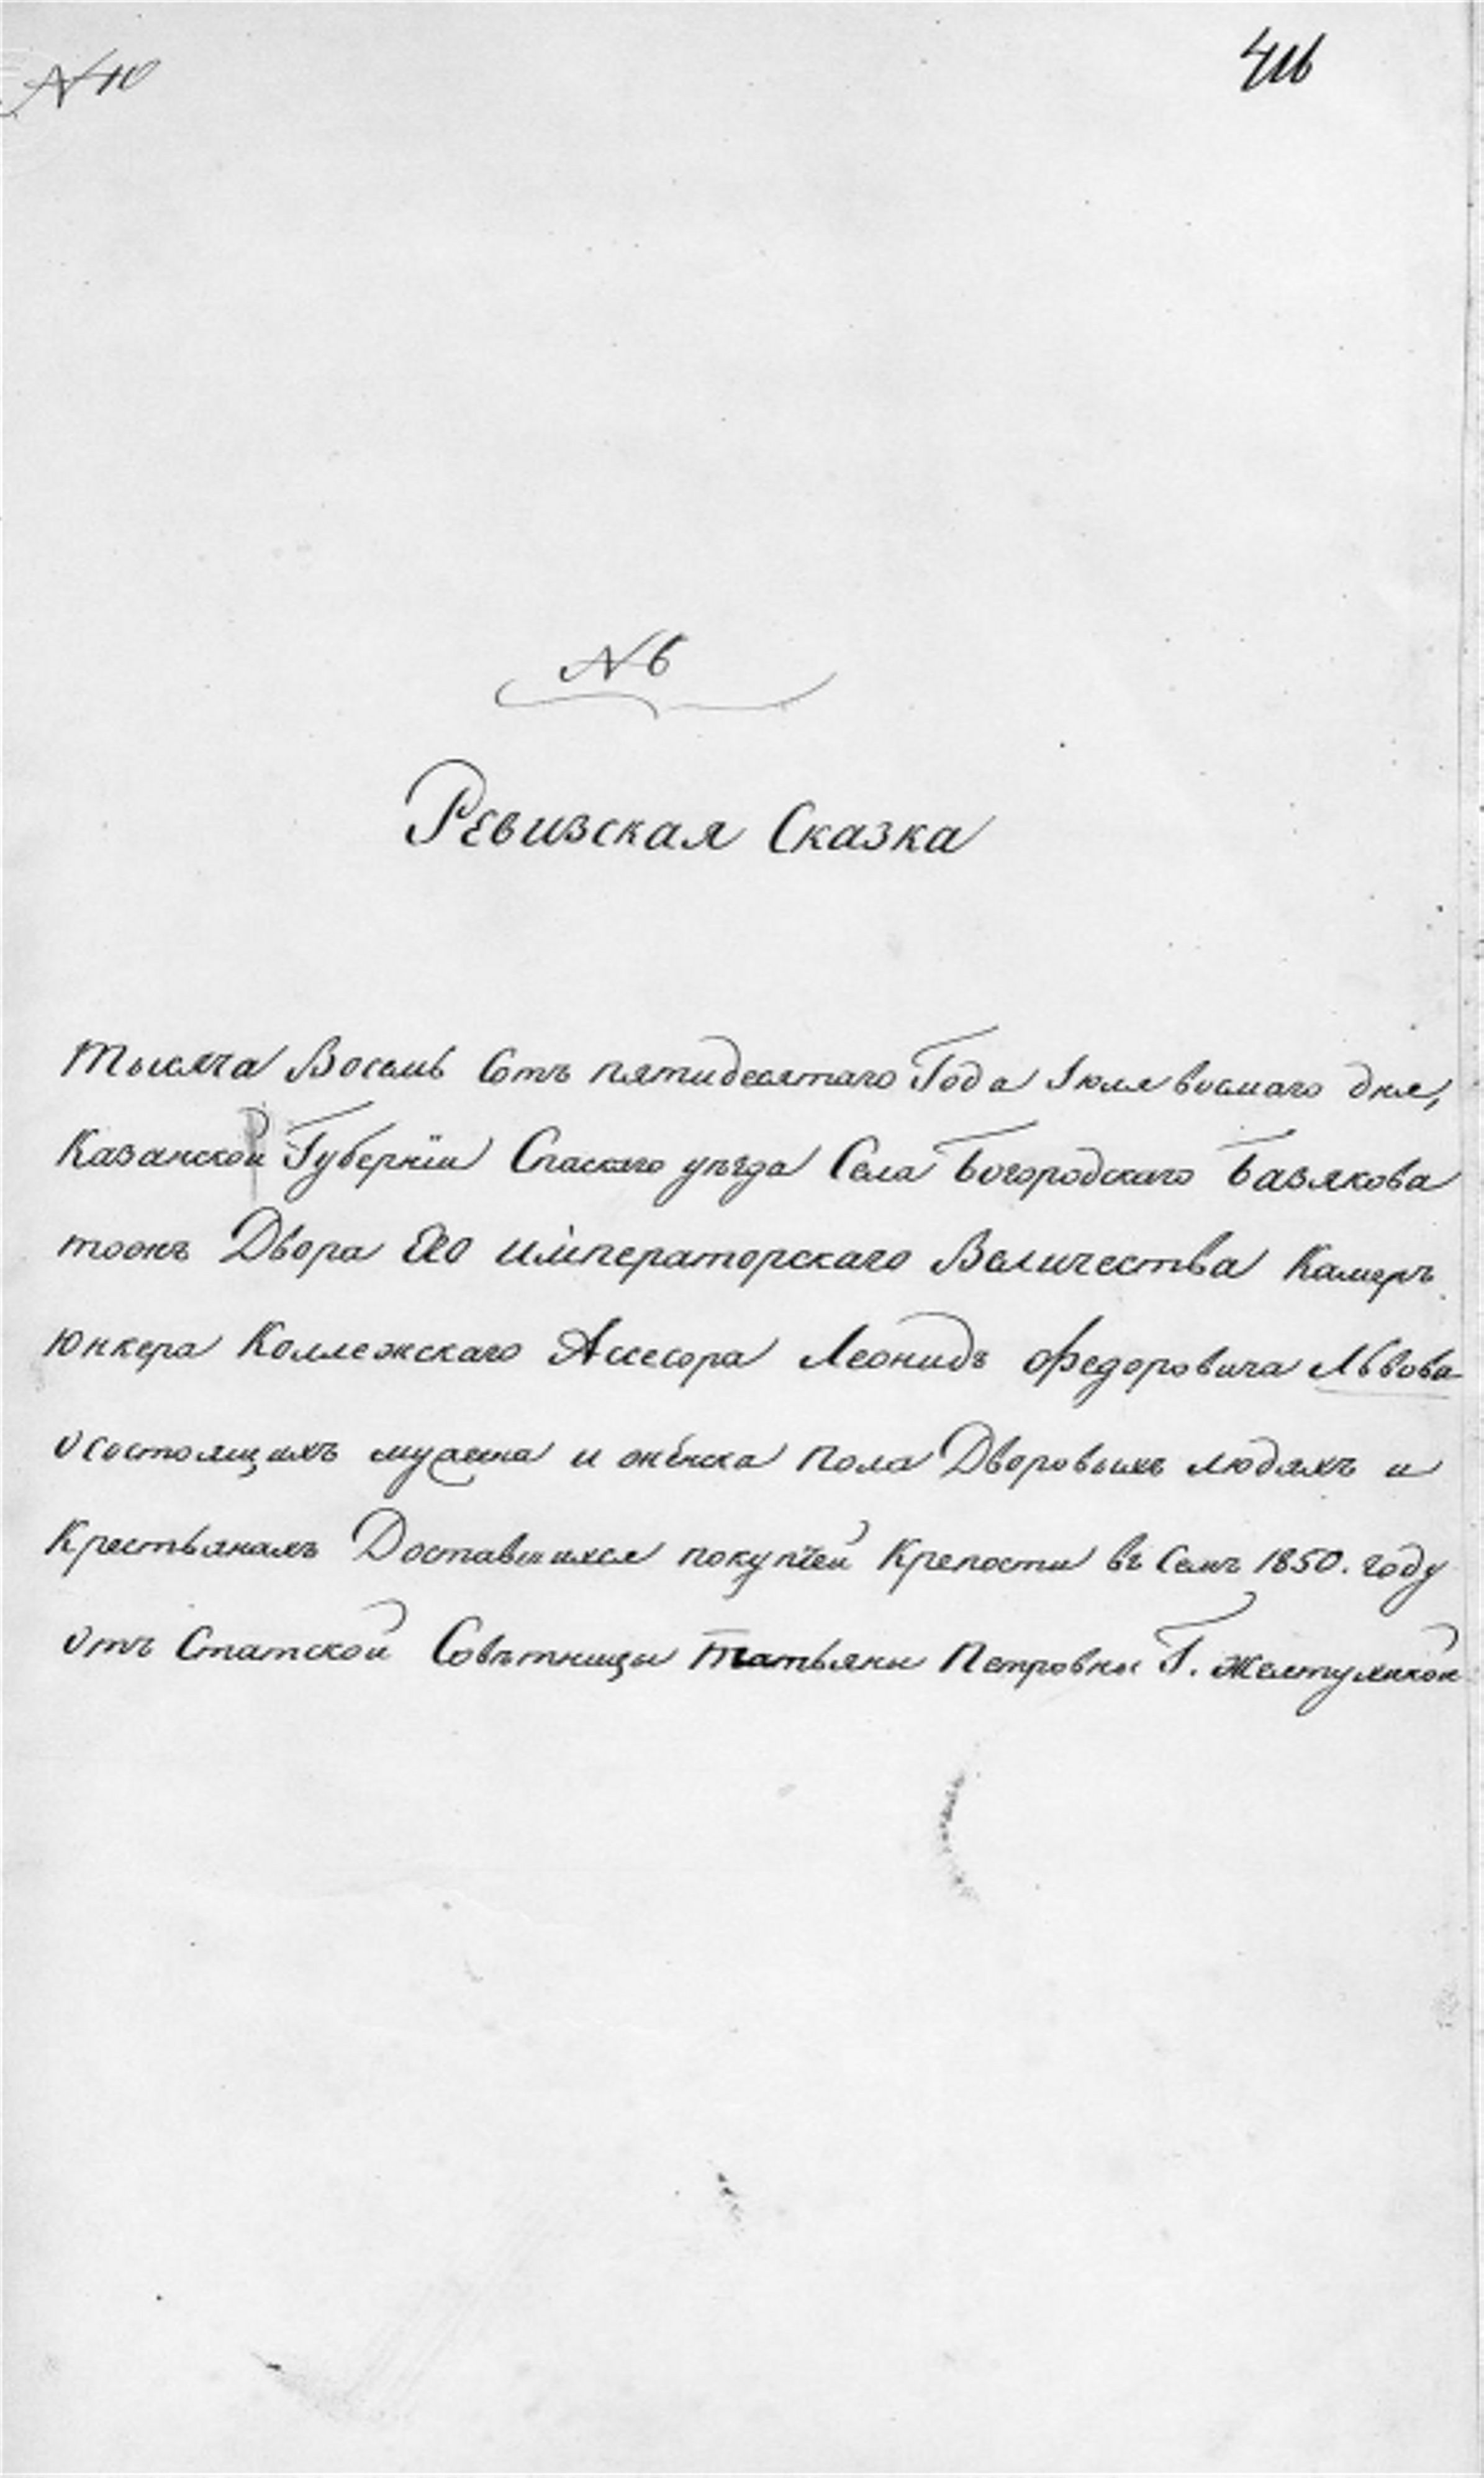 N 10
416
N 6
Ревизская Сказка
Тысяча Восемь Сотъ пятидесятаго Года Іюля восмаго дня,
Казанской Губерніи Спаскаго уѣзда Села Богородскаго Базякова
тожъ Двора Его императорскаго Величества Камеръ
юнкера Коллежскаго Ассесора Леонидъ Федоровича Львова
о состоящихъ мужеска и женска пола Дворовыхъ людяхъ и
Крестьянахъ Доставшихся покупчей Крепости въ семъ 1850. году
отъ Статской Совѣтницы Татьяны Петровны Г. Желтухиной